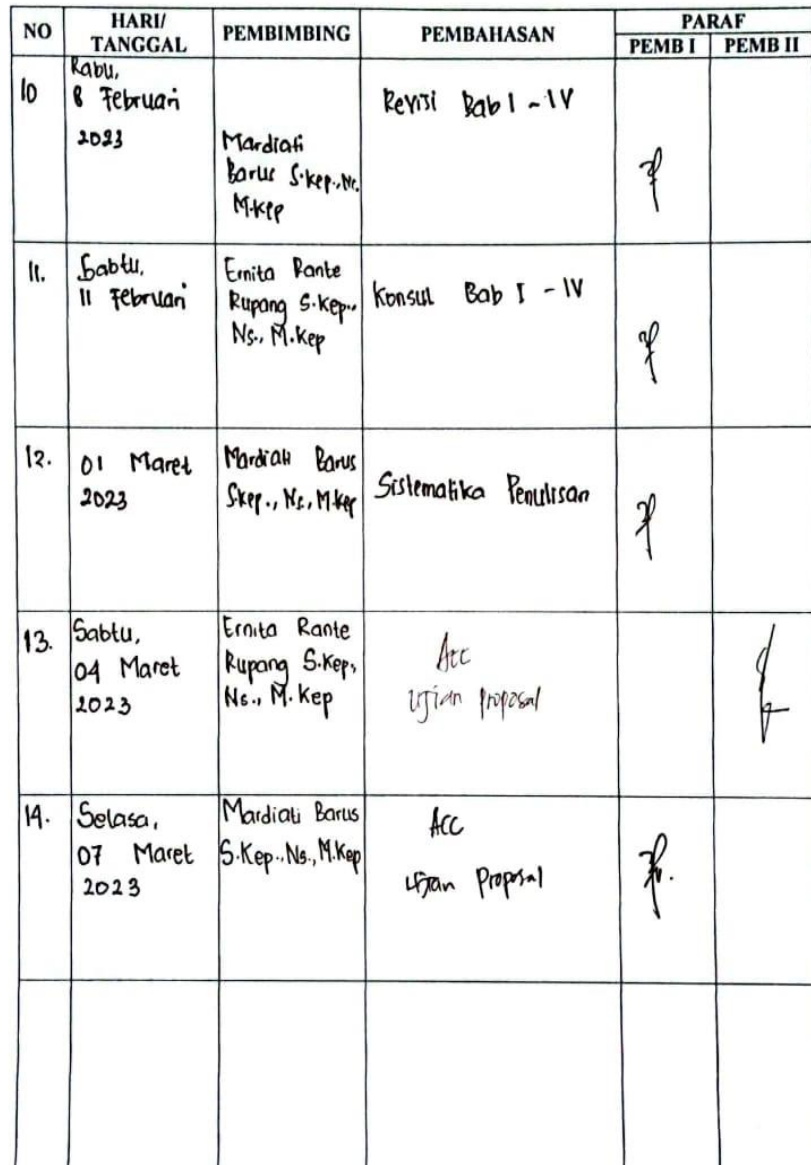 NO HARI/ TANGGAL PEMBIMBING PEMBAHASAN PARAF
PEMB I PEMB II
10 Rabu, 8 Februari 2023 Mardiati Barus S.Kep., Ns. M.Kep Revisi Bab I - IV
11. Sabtu, 11 Februari Ernita Rante Rupang S.Kep., Ns., M.Kep Konsul Bab I - IV
12. 01 Maret 2023 Mardiati Barus S.Kep., Ns., M.Kep Sistematika Penulisan
13. Sabtu, 04 Maret 2023 Ernita Rante Rupang S.Kep, Ns., M.Kep Acc Ujian Proposal
14. Selasa, 07 Maret 2023 Mardiati Barus S.Kep., Ns., M.Kep Acc Ujian Proposal